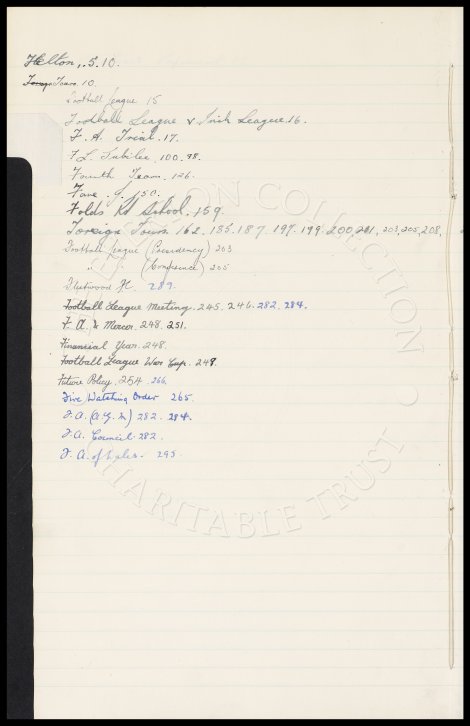 Felton, . 5.10.
Tours. 10.
Football League 15
Football League & Irish League. 16.
F. A. Trial. 17.
F L. Jubilee. 100. 98.
Fourth Team. 126.
J. 150.
Folds Rd School. 159.
Foreign Tours 162. 185. 187. 197. 199. 200, 201, 203, 205, 208,
Football League (Presidency) 203
" " (Conference) 205
Fleetwood FC 289.
Football League Meeting. 245. 246. 282. 284.
F. A. & Mercer. 248. 251.
Financial Year. 248.
Football League War Cup. 249.
Future Policy. 254. 266.
Fire Watching Order 265.
F. A. (A. G. M) 282. 284.
F. A. Council. 282.
F. A. of Wales. 295.
COLLECTION
CHARITABLE TRUST